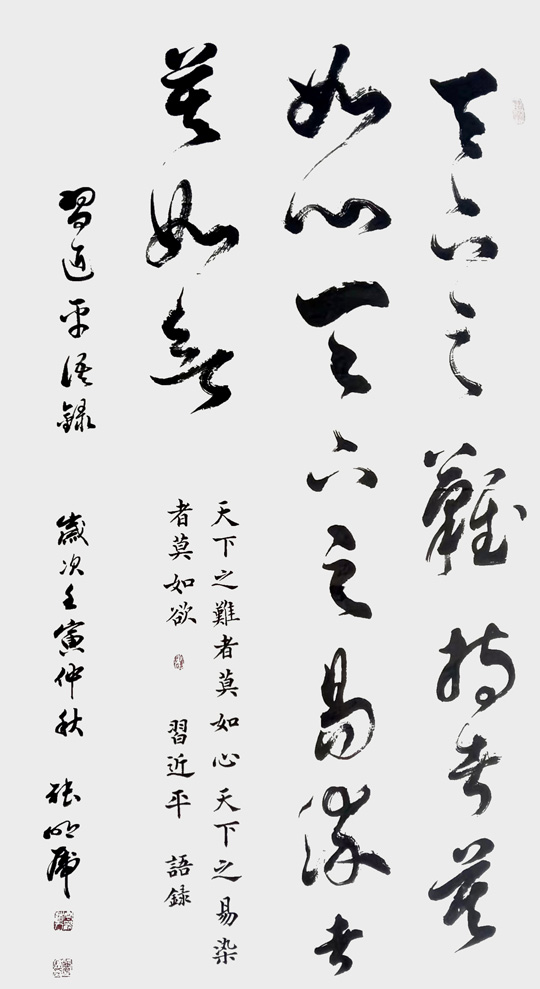 天下之難持者莫
如心天下之易染者
莫如欲
天下之難者莫如心天下之易染
者莫如欲 習近平 語錄
習近平語錄 歲次壬寅仲秋 張明虎